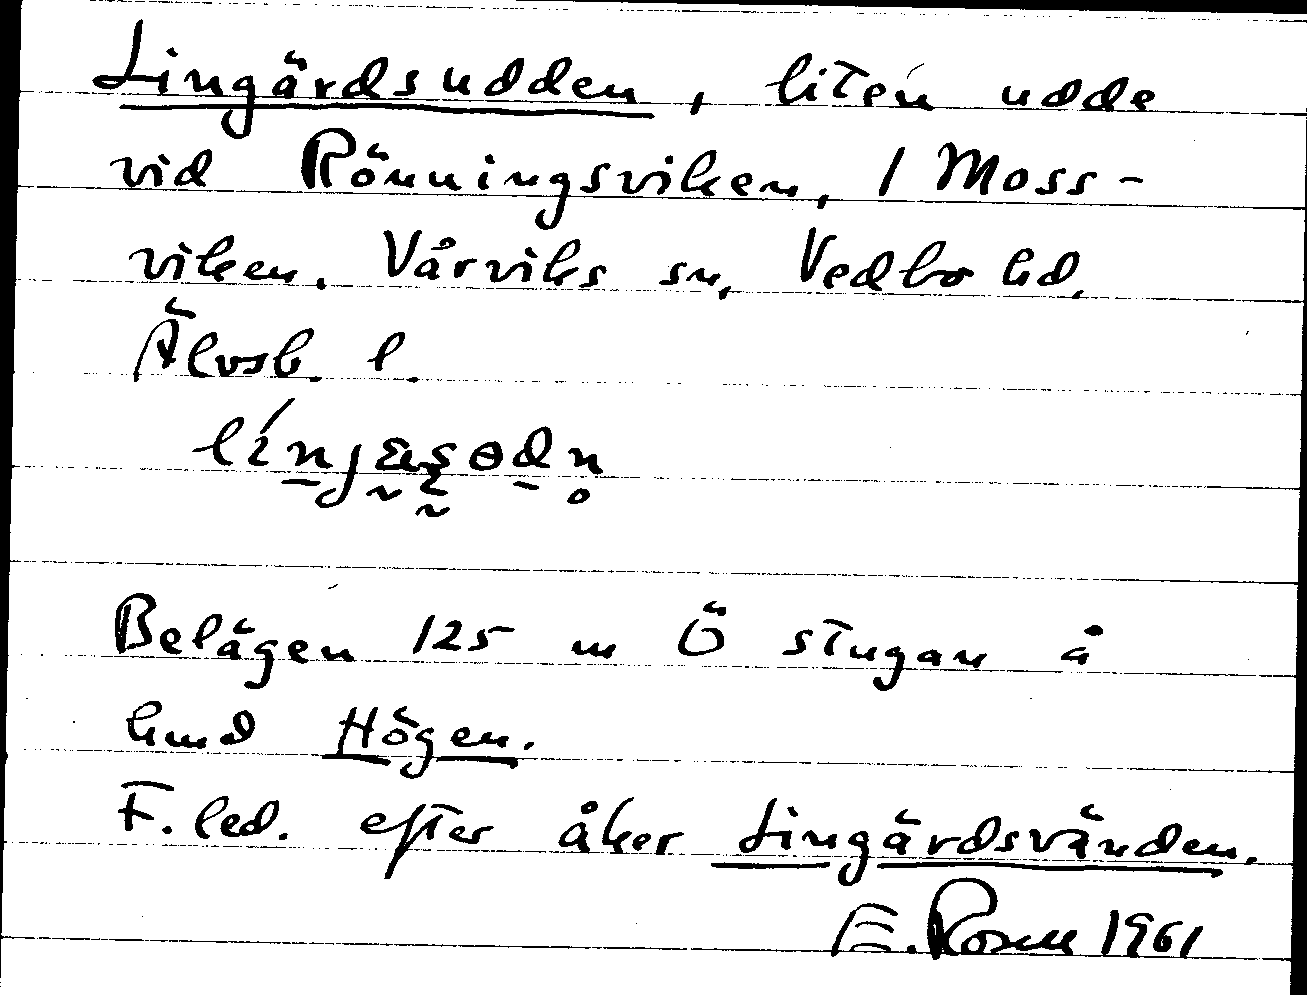 Lingärdsudden, liten udde
vid Rönningsviken, i Moss-
viken. Vårviks sn, Vedbo hd,
Älvsb. l.
Belägen 125 m Ö stugan å
hmd Högen.
F. led. efter åker Lingärdsvänden.
E. Rosell 1961